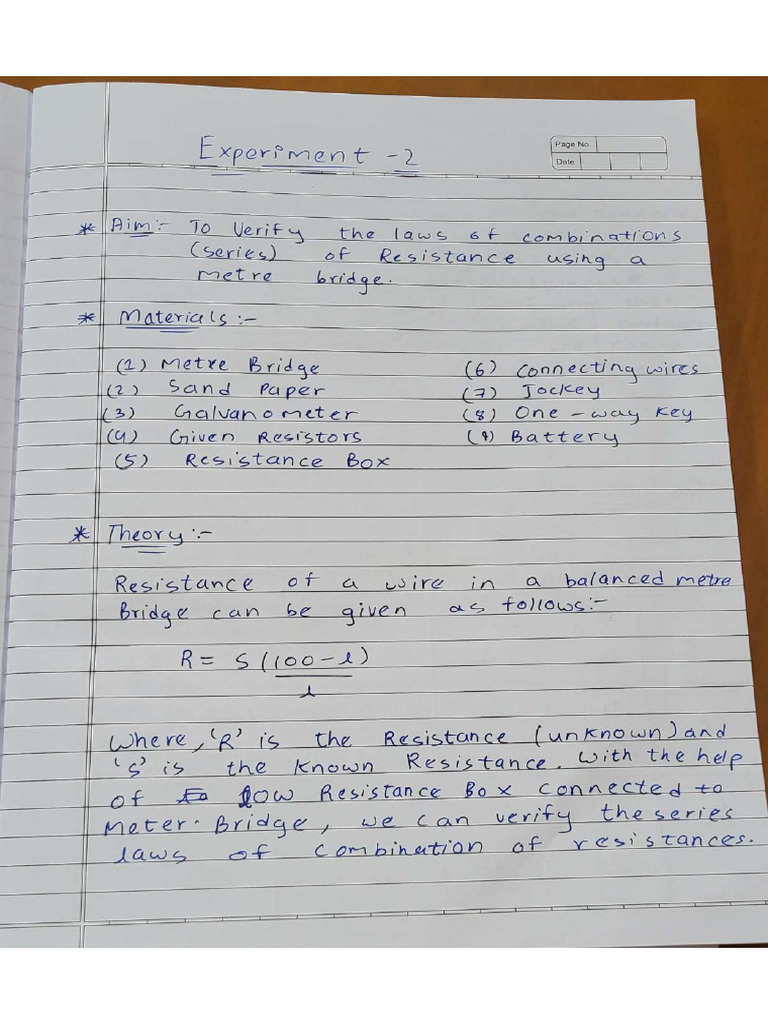 Experiment - 2
Page No.
Date
* Aim:- To Verify the laws of combinations
(series) of Resistance using a
metre bridge.
* Materials:-
(1) Metre Bridge (6) Connecting wires
(2) Sand Paper (7) Jockey
(3) Galvanometer (8) One-way Key
(4) Given Resistors (9) Battery
(5) Resistance Box
* Theory:-
Resistance of a wire in a balanced metre
Bridge can be given as follows:-
R = S(100-l)
l
Where, 'R' is the Resistance (unknown) and
'S' is the known Resistance. With the help
of low Resistance Box connected to
Meter. Bridge, we can verify the series
laws of combination of resistances.